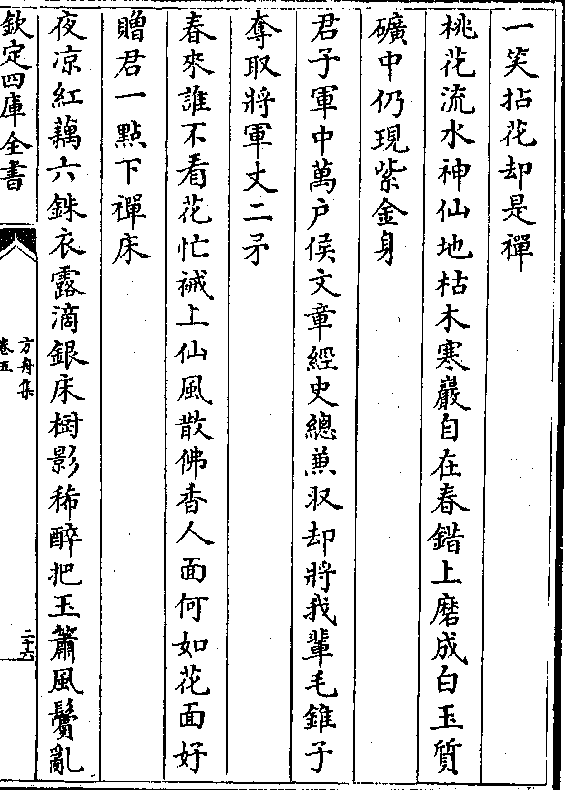 一笑拈花却是禪
桃花流水神仙地枯木寒巖自在春錯上磨成白玉質
礦中仍現紫金身
君子軍中萬戶侯文章經史總兼収却將我輩毛錐子
奪取將軍丈二矛
春來誰不看花忙祴上仙風散佛香人面何如花面好
贈君一點下禪床
夜凉紅藕六銖衣露滴銀床樹影稀醉把玉簫風鬢亂
欽定四庫全書
方舟集
卷五
二十六